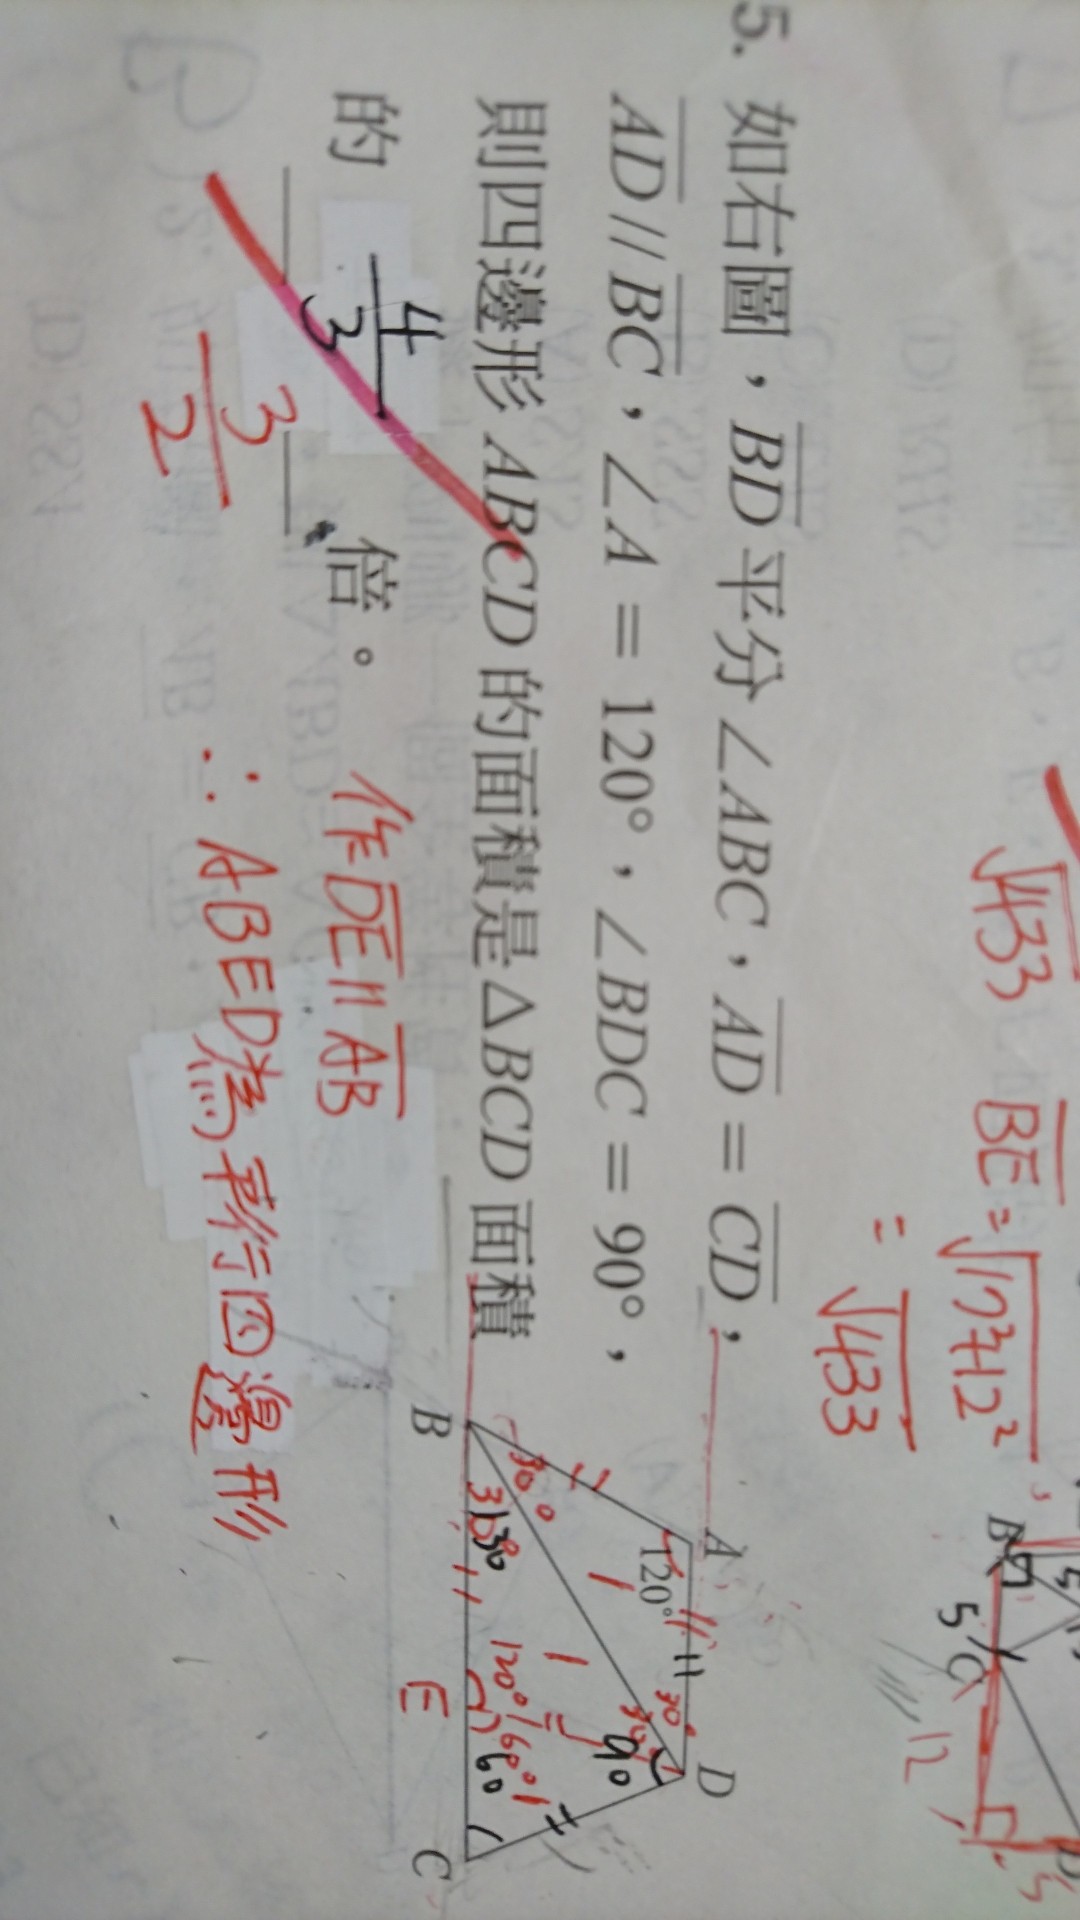 5. 如右圖，BD 平分 ∠ABC，AD = CD，
AD // BC，∠A = 120°，∠BDC = 90°，
則四邊形 ABCD 的面積是 △BCD 面積
的 4/3 倍。
3/2
作 DE // AB
∴ ABED為平行四邊形
√433
BE = √17²+12²
= √433
B
5
C
12
A
120°
D
30°
30°
30
90
1
1
1
120°
60°
60
B
E
C